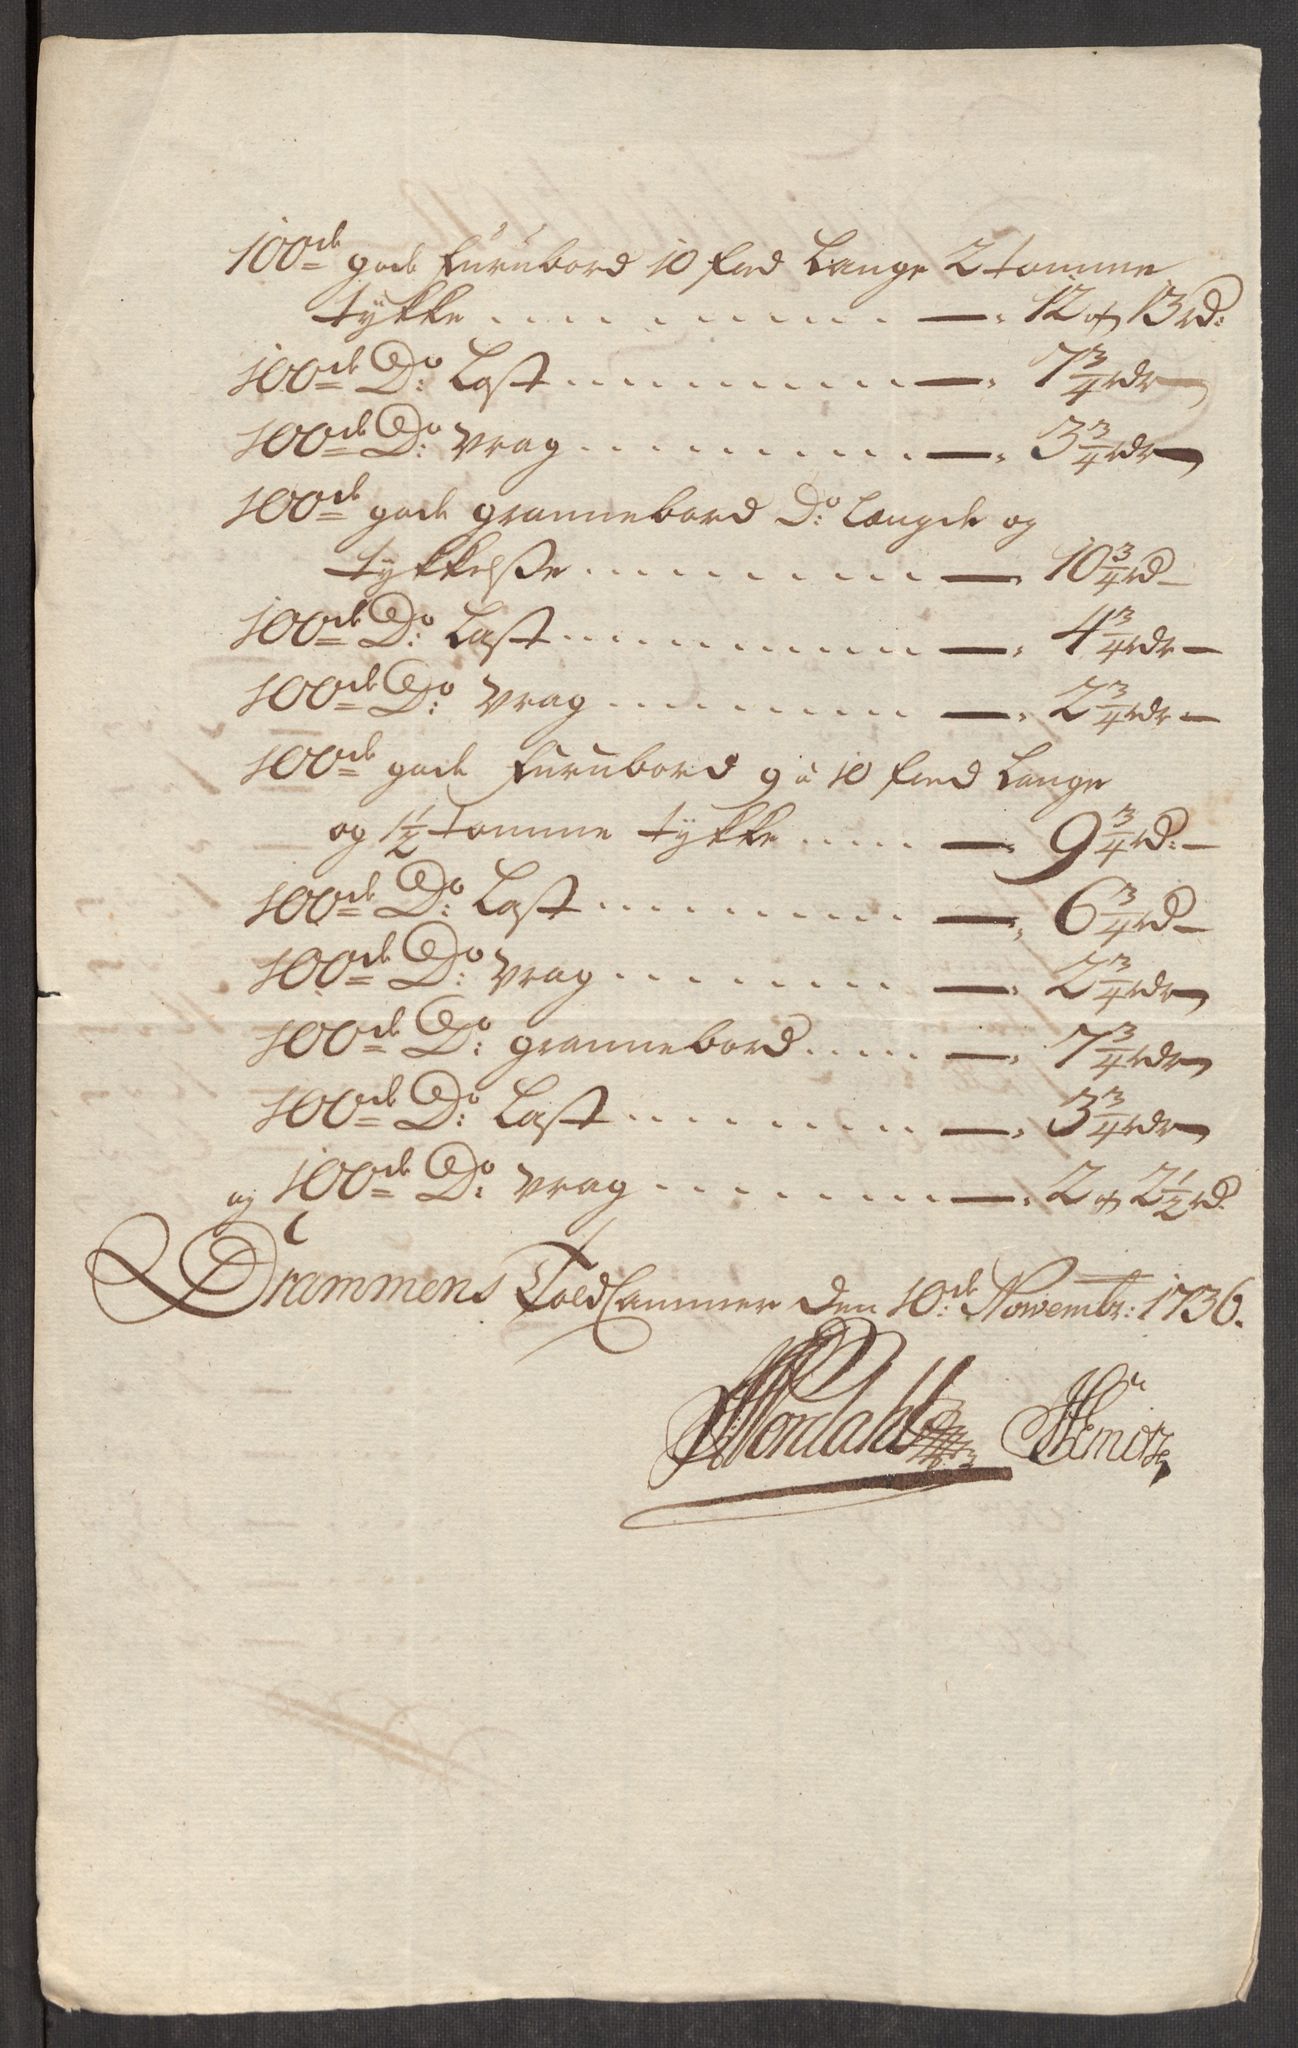 100de gode Furubord 10 foed Lange 2 tomme
tykke . . . . . . . . . . — 12 à 13 rd:
100de Do: Last . . . . . . . . . . — 7 3/4 rdr —
100de Do: Vrag . . . . . . . . . . — 3 3/4 rdr —
100de gode grannebord Do: Længde og
tykkelsse . . . . . . . . . . — 10 3/4 rd —
100de Do: Last . . . . . . . . . . — 4 3/4 rdr —
100de Do: Vrag . . . . . . . . . . — 2 3/4 rdr —
100de gode Furubord 9 à 10 foed Lange
og 1 1/2 tomme tykke . . . . . — 9 3/4 rd: —
100de Do: Last . . . . . . . . . . — 6 3/4 rd —
100de Do: Vrag . . . . . . . . . . — 2 3/4 rdr —
100de Do: grannebord . . . . . — 7 3/4 rdr —
100de Do: Last . . . . . . . . . . — 3 3/4 rdr —
og 100de Do: Vrag . . . . . . . . . . — 2 à 2 1/2 rd.
Drammens ToldCammer den 10de: Novembr: 1736.
Nordahl